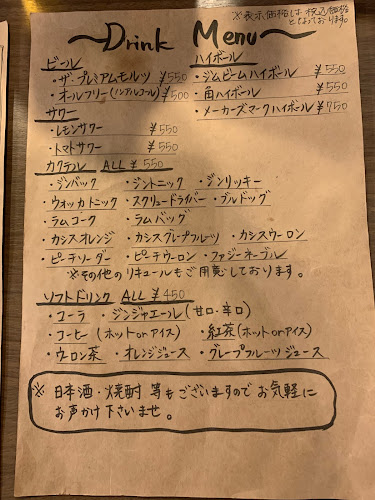 ※表示価格は税込価格
となっております。
~Drink Menu~
ビール
・ザ・プレミアムモルツ ¥550
・オールフリー(ノンアルコール) ¥500
サワー
・レモンサワー ¥550
・トマトサワー ¥550
ハイボール
・ジムビームハイボール ¥550
・角ハイボール ¥550
・メーカーズマークハイボール ¥750
カクテル ALL ¥550
・ジンバック ・ジントニック ・ジンリッキー
・ウォッカトニック ・スクリュードライバー ・ブルドッグ
・ラムコーク ・ラムバッグ
・カシスオレンジ ・カシスグレープフルーツ ・カシスウーロン
・ピーチソーダー ・ピーチウーロン ・ファジーネーブル
※その他のリキュールもご用意しております。
ソフトドリンク ALL ¥450
・コーラ ・ジンジャエール(甘口・辛口)
・コーヒー(ホットorアイス) ・紅茶(ホットorアイス)
・ウーロン茶 ・オレンジジュース ・グレープフルーツジュース
※ 日本酒・焼酎 等もございますのでお気軽に
お声かけ下さいませ。